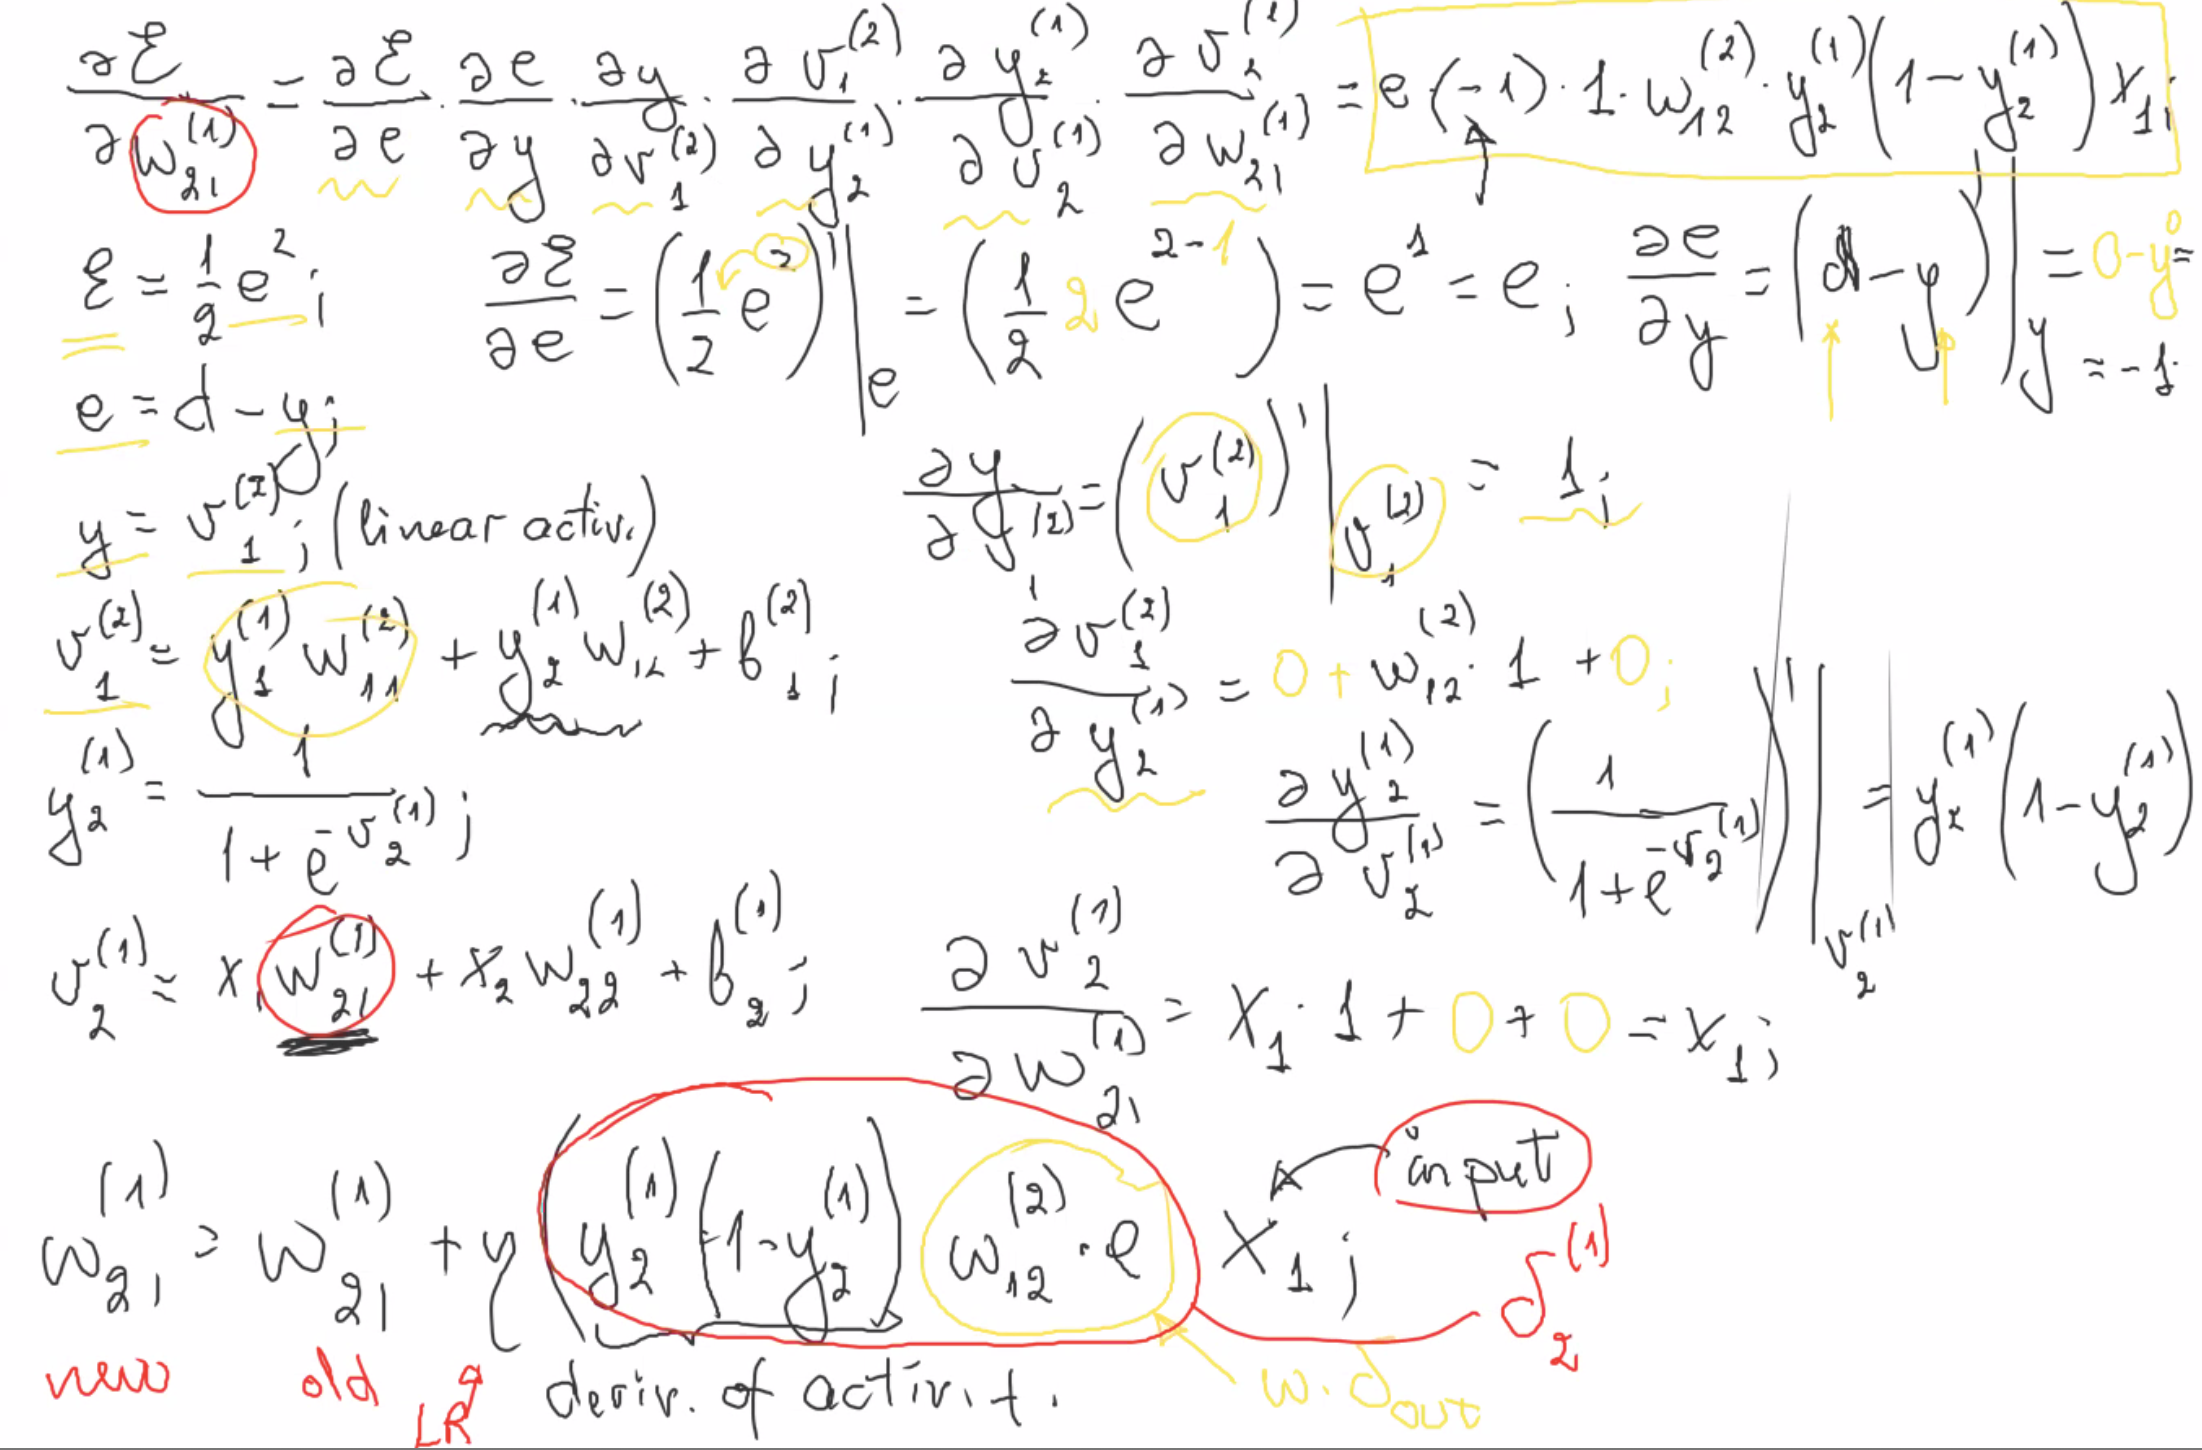 ∂ℰ/∂w₂₁⁽¹⁾ = ∂ℰ/∂e · ∂e/∂y · ∂y/∂v₁⁽²⁾ · ∂v₁⁽²⁾/∂y₂⁽¹⁾ · ∂y₂⁽¹⁾/∂v₂⁽¹⁾ · ∂v₂⁽¹⁾/∂w₂₁⁽¹⁾ = e·(-1)·1·w₁₂⁽²⁾·y₂⁽¹⁾(1-y₂⁽¹⁾)x₁;
ℰ = 1/2 e²; ∂ℰ/∂e = (1/2 e²)'|e = (1/2 2 e²⁻¹) = e¹ = e; ∂e/∂y = (d-y)'|y = 0-y⁰ = -1;
e = d - y;
y = v₁⁽²⁾; (linear activ.) ∂y/∂v₁⁽²⁾ = (v₁⁽²⁾)'|v₁⁽²⁾ = 1;
v₁⁽²⁾ = y₁⁽¹⁾w₁₁⁽²⁾ + y₂⁽¹⁾w₁₂⁽²⁾ + b₁⁽²⁾; ∂v₁⁽²⁾/∂y₂⁽¹⁾ = 0 + w₁₂⁽²⁾·1 + 0;
y₂⁽¹⁾ = 1/(1 + e^(-v₂⁽¹⁾)); ∂y₂⁽¹⁾/∂v₂⁽¹⁾ = (1/(1+e^(-v₂⁽¹⁾)))'|v₂⁽¹⁾ = y₂⁽¹⁾(1-y₂⁽¹⁾)
v₂⁽¹⁾ = x₁w₂₁⁽¹⁾ + x₂w₂₂⁽¹⁾ + b₂⁽¹⁾; ∂v₂⁽¹⁾/∂w₂₁⁽¹⁾ = x₁·1 + 0 + 0 = x₁;
input
w₂₁⁽¹⁾ = w₂₁⁽¹⁾ + η(y₂⁽¹⁾(1-y₂⁽¹⁾) w₁₂⁽²⁾·e x₁; δ₂⁽¹⁾
new old LR deriv. of activ. f. w·δout